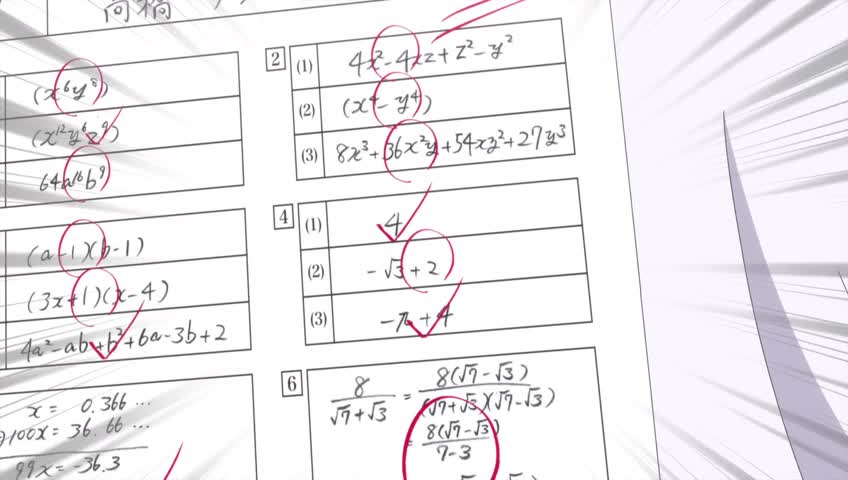 (x⁶y⁸)
(x¹²y⁶z⁹)
64a¹⁶b⁹
(a-1)(b-1)
(3x+1)(x-4)
4a²-ab+b²+6a-3b+2
x = 0.366...
100x = 36.66...
99x = -36.3
2
(1) 4x²-4xz+z²-y²
(2) (x⁴-y⁴)
(3) 8x³+36x²y+54xy²+27y³
4
(1) 4
(2) -√3+2
(3) -π+4
6
8/(√7+√3) = 8(√7-√3)/(√7+√3)(√7-√3)
= 8(√7-√3)/7-3